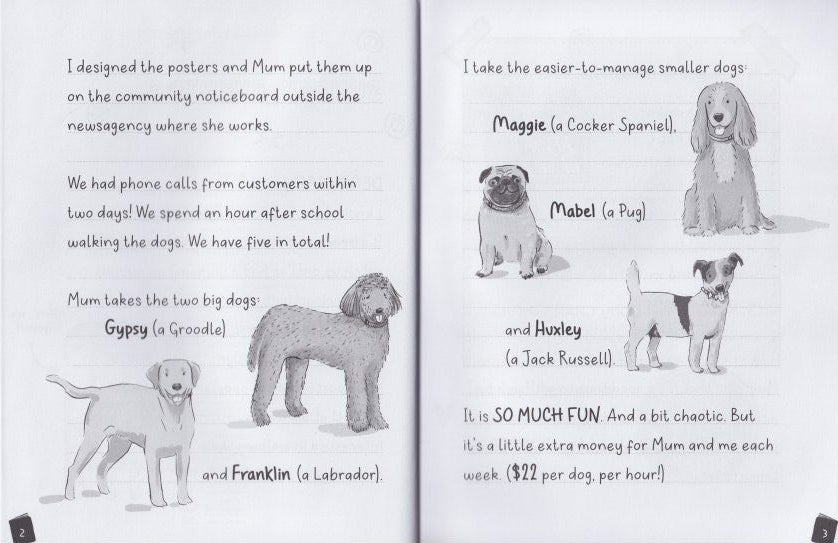 I designed the posters and Mum put them up
on the community noticeboard outside the
newsagency where she works.
We had phone calls from customers within
two days! We spend an hour after school
walking the dogs. We have five in total!
Mum takes the two big dogs:
Gypsy (a Groodle)
and Franklin (a Labrador).
2
I take the easier-to-manage smaller dogs:
Maggie (a Cocker Spaniel),
Mabel (a Pug)
and Huxley
(a Jack Russell).
It is SO MUCH FUN. And a bit chaotic. But
it's a little extra money for Mum and me each
week. ($22 per dog, per hour!)
3